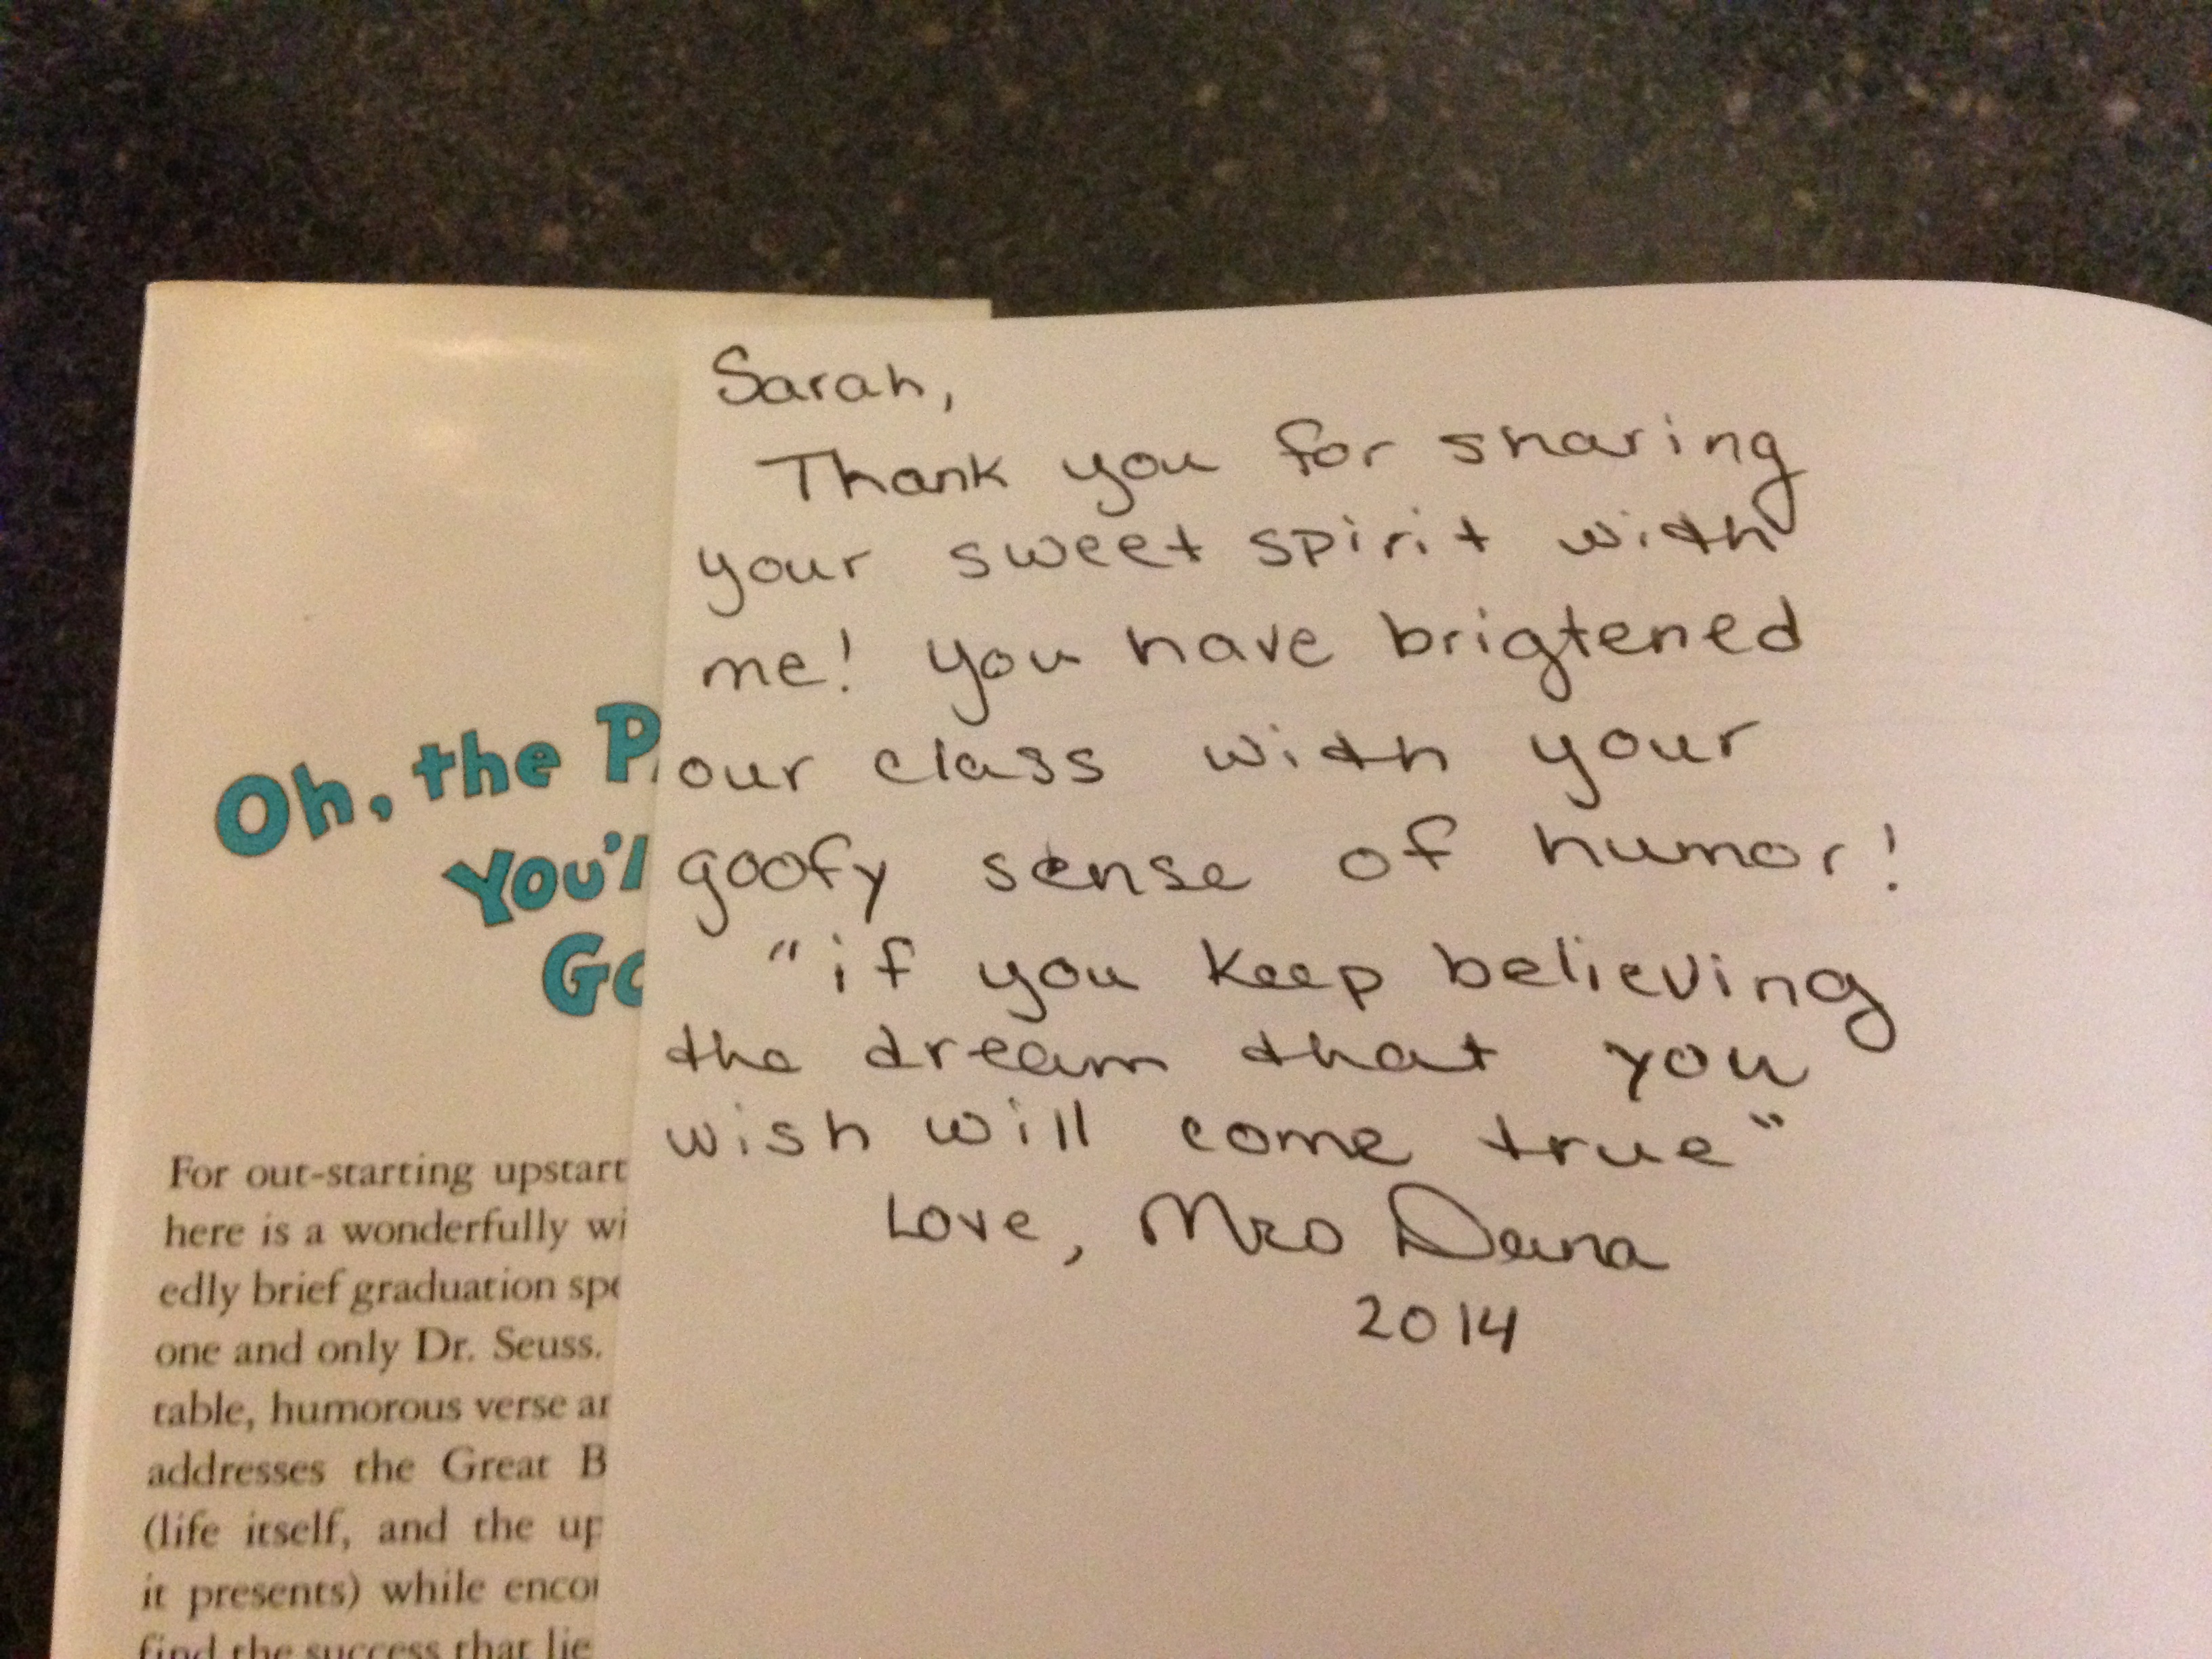 Sarah,
Thank you for sharing
your sweet spirit with
me! you have brigtened
our class with your
goofy sense of humor!
"if you keep believing
the dream that you
wish will come true"
Love, Mrs Dana
2014
Oh, the P
You'l
Go
For out-starting upstart
here is a wonderfully wi
edly brief graduation spe
one and only Dr. Seuss.
table, humorous verse an
addresses the Great B
(life itself, and the up
it presents) while encou
find the success that lie